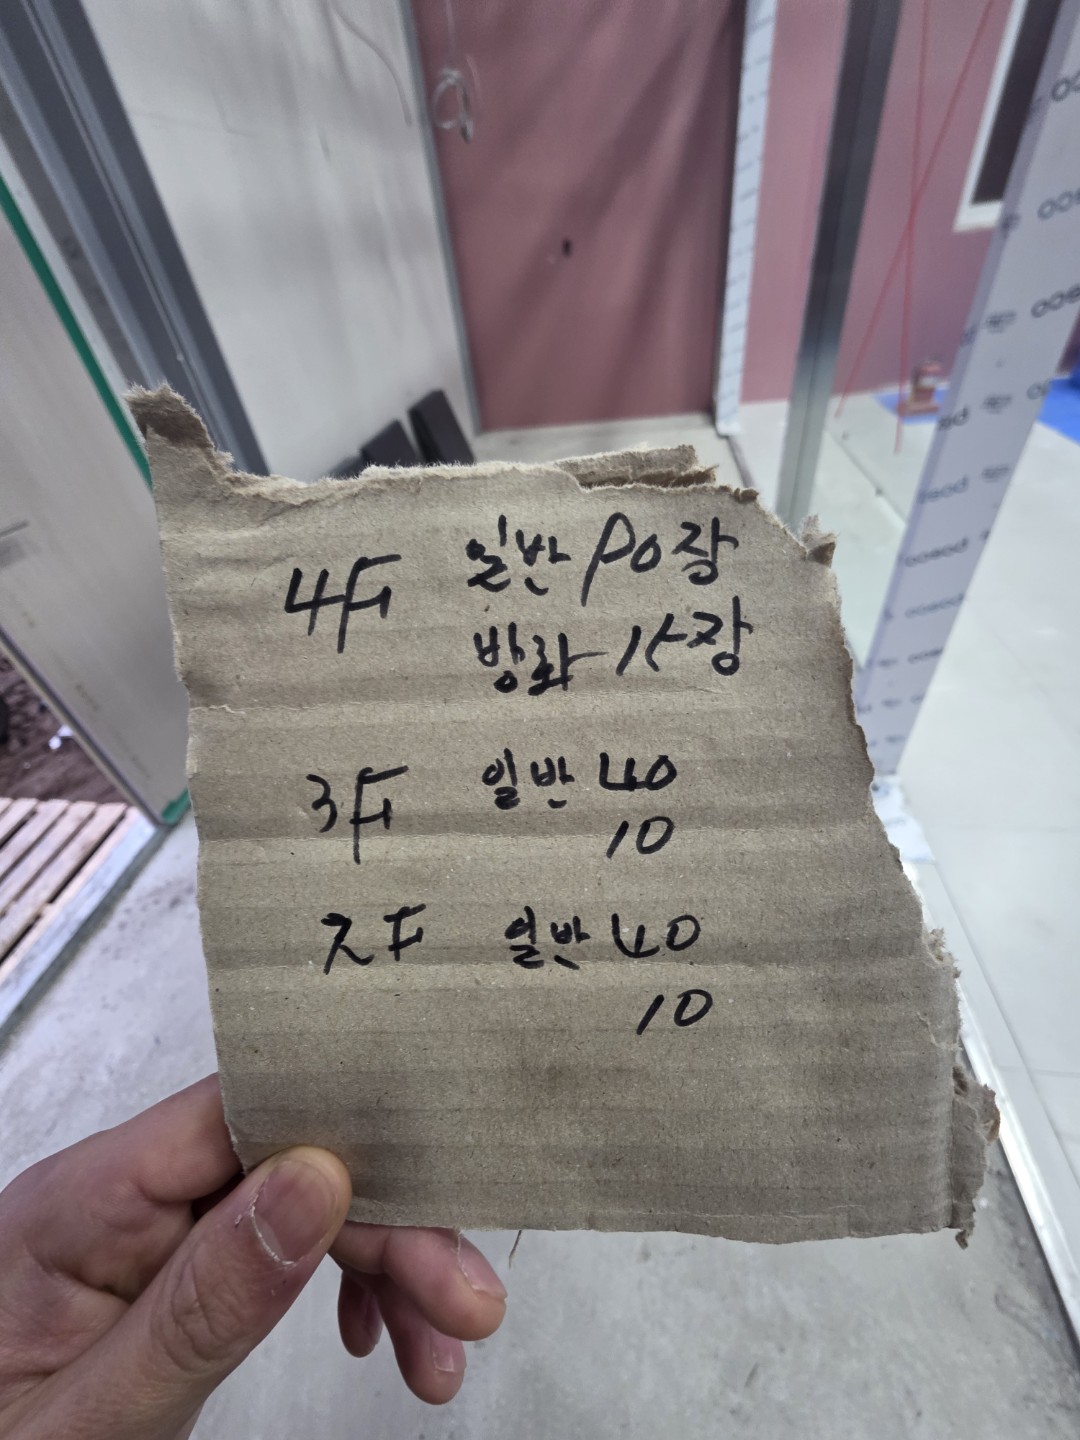 4F 일반
방화 15장
3F 일반 40
10
2F 일반 40
10